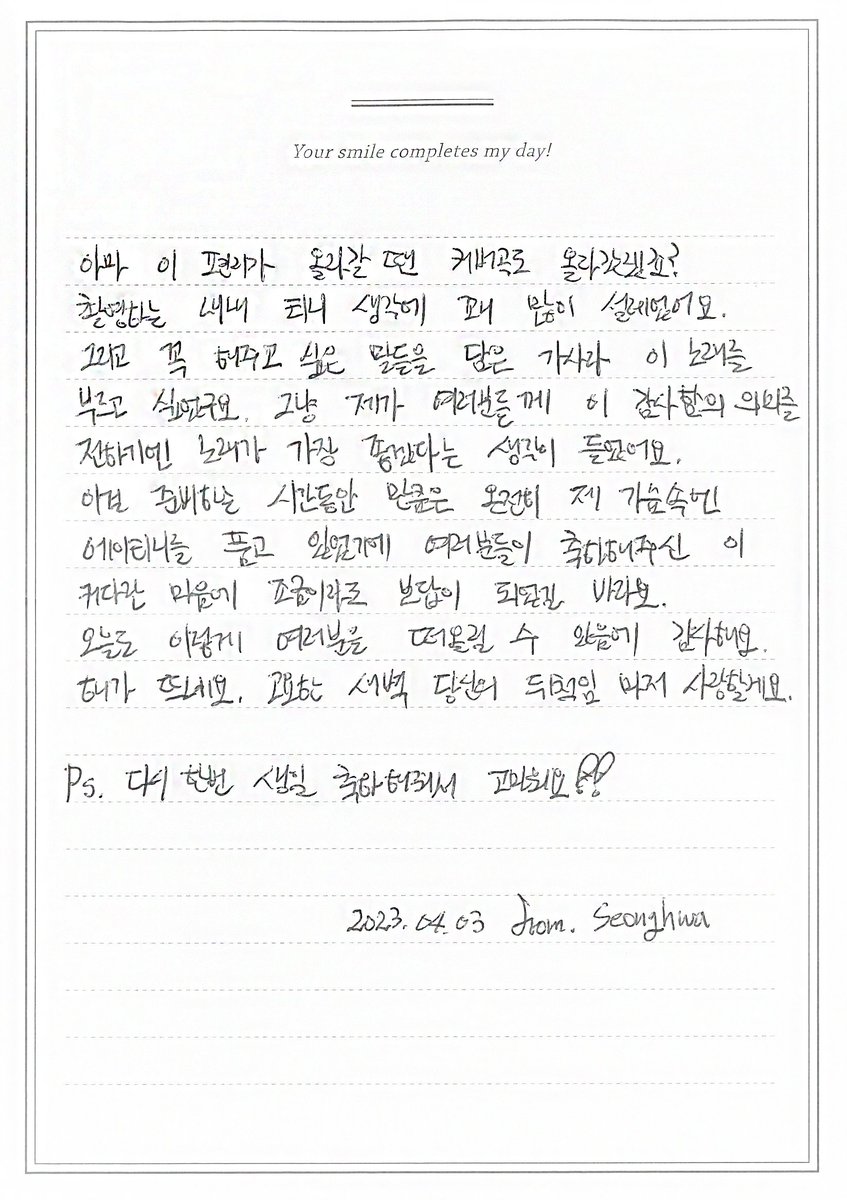 Your smile completes my day!
아마 이 편지가 올라갈 땐 커버곡도 올라갔겠죠?
촬영하는 내내 티니 생각에 꽤 많이 설레었어요.
그리고 꼭 해주고 싶은 말들을 담은 가사라 이 노래를
부르고 싶었구요. 그냥 제가 여러분들께 이 감사함의 의미를
전하기엔 노래가 가장 좋겠다는 생각이 들었어요.
이걸 준비하는 시간동안 만큼은 온전히 제 가슴속엔
에이티니를 품고 있었기에 여러분들이 축하해주신 이
커다란 마음에 조금이라도 보답이 되었길 바라요.
오늘도 이렇게 여러분을 떠올릴 수 있음에 감사해요.
해가 뜨네요. 고요한 새벽 당신의 뒤척임 마저 사랑할게요.
Ps. 다시 한번 생일 축하해줘서 고마워요♡♡
2023.04.03 from. Seonghwa